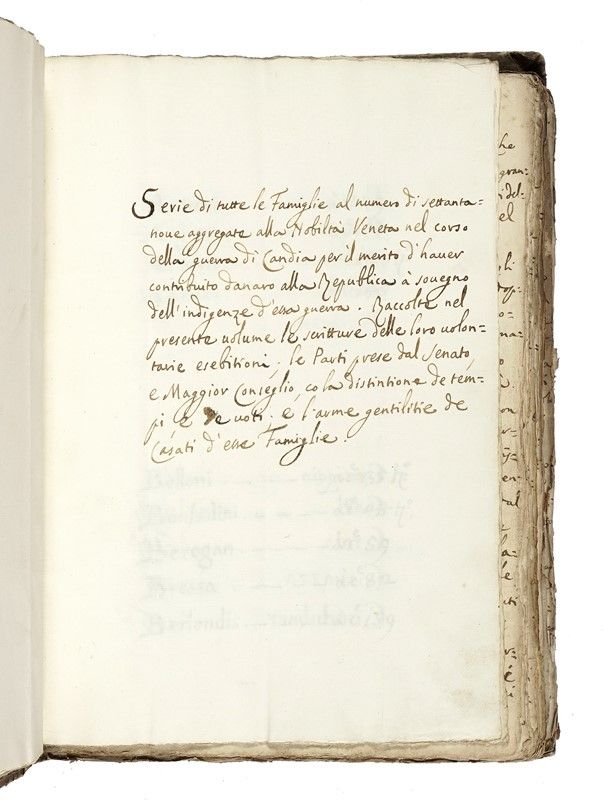 Serie di tutte le Famiglie al numero di settanta=
noue aggregate alla Nobiltà Veneta nel corso
della guerra di Candia per il merito d'hauer
contribuito danaro alla Republica à souegno
dell'indigenze d'essa guerra. Raccolte nel
presente uolume le scritture delle loro uolon=
tarie esebitioni; le Parti prese dal Senato,
e Maggior Conseglio, co la distintione de tem=
pi e de uoti; e l'arme gentilitie de
Casati d'esse Famiglie.